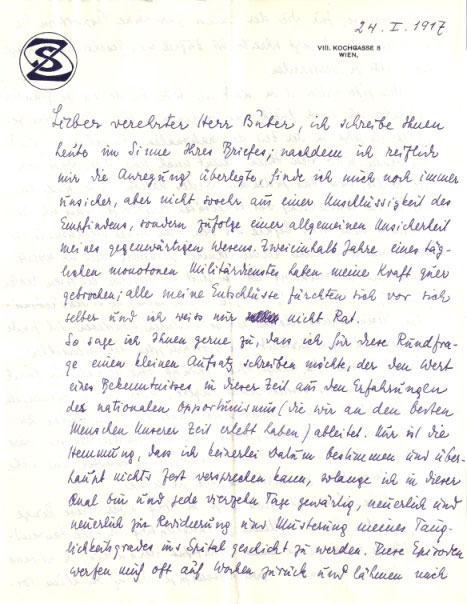 SZ
24. I. 1917
VIII. KOCHGASSE 8
WIEN,
Lieber verehrter Herr Buber, ich schreibe Ihnen
heute im Sinne Ihres Briefes; nachdem ich reiflich
mir die Anregung überlegte, finde ich mich noch immer
unsicher, aber nicht sosehr aus einer Unschlüssigkeit des
Empfindens, sondern zufolge einer allgemeinen Unsicherheit
meines gegenwärtigen Wesens. Zweieinhalb Jahre eines täg-
lichen monotonen Militärdienstes haben meine Kraft quer
gebrochen; alle meine Entschlüsse fürchten sich vor sich
selber und ich weiss mir nicht Rat.
So sage ich Ihnen gerne zu, dass ich für diese Rundfra-
ge einen kleinen Aufsatz schreiben möchte, der den Wert
eines Bekenntnisses in dieser Zeit aus den Erfahrungen
des nationalen Opportunismus (die wir an den besten
Menschen unserer Zeit erlebt haben) ableitet. Nur ist die
Hemmung, dass ich keinerlei Datum bestimmen und über-
haupt nichts fest versprechen kann, solange ich in dieser
Qual bin und jede vierzehn Tage gewärtig, neuerlich und
neuerlich zur Revidierung und Musterung meines Taug-
lichkeitsgrades ins Spital geschickt zu werden. Diese Episoden
werfen mich oft auf Wochen zurück und lähmen nach